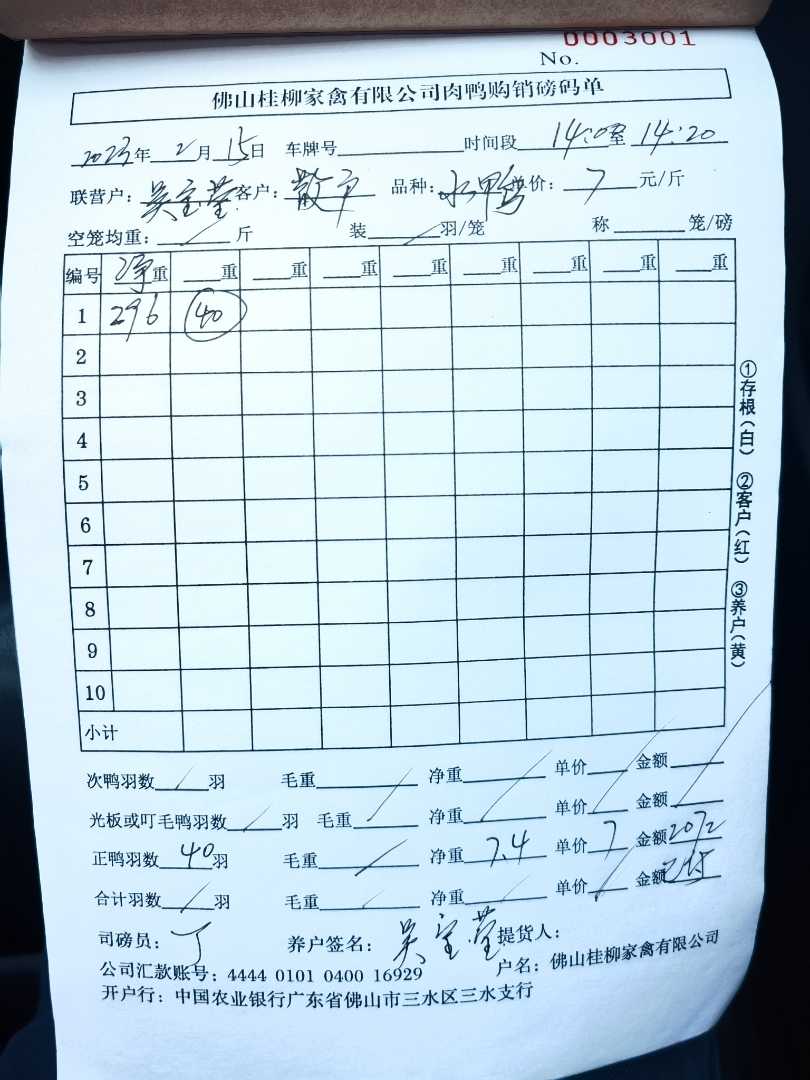 0003001
No.
佛山桂柳家禽有限公司肉鸭购销磅码单
2023年2月15日 车牌号 时间段 14:0至14:20
联营户：吴宝莹 客户：散户 品种：水鸭 单价：7 元/斤
空笼均重：/ 斤 装/羽/笼 称 笼/磅
编号 净重 重 重 重 重 重 重 重 重
1 296 40
2
3
4
5
6
7
8
9
10
小计
①存根(白) ②客户(红) ③养户(黄)
次鸭羽数/羽 毛重/ 净重/ 单价/ 金额/
光板或叮毛鸭羽数/羽 毛重/ 净重/ 单价/ 金额/
正鸭羽数40羽 毛重/ 净重7.4 单价7 金额2072
合计羽数/羽 毛重/ 净重/ 单价/ 金额已付
司磅员：丁 养户签名：吴宝莹 提货人：
公司汇款账号：4444 0101 0400 16929 户名：佛山桂柳家禽有限公司
开户行：中国农业银行广东省佛山市三水区三水支行